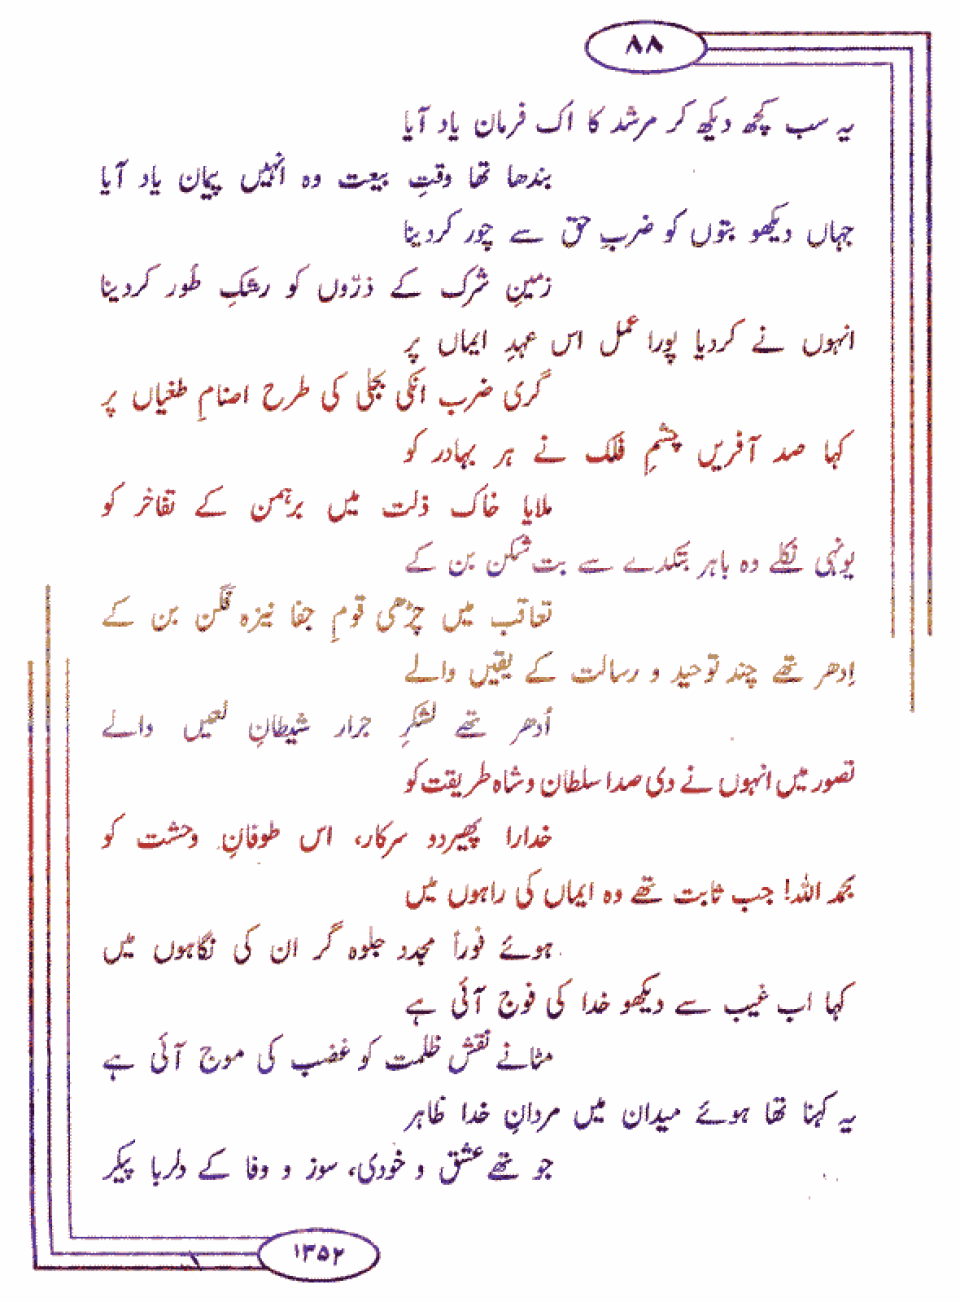 ۸۸
یہ سب کچھ دیکھ کر مرشد کا اک فرمان یاد آیا
بندھا تھا وقتِ بیعت وہ انہیں پیمان یاد آیا
جہاں دیکھو بتوں کو ضربِ حق سے چور کردینا
زمینِ شرک کے ذرّوں کو رشکِ طور کردینا
انہوں نے کردیا پورا عمل اس عہدِ ایماں پر
گری ضرب انکی بجلی کی طرح اصنامِ طغیاں پر
کہا صد آفریں چشمِ فلک نے ہر بہادر کو
ملایا خاک ذلت میں برہمن کے تفاخر کو
یونہی نکلے وہ باہر بتکدے سے بت شکن بن کے
تعاقب میں چڑھی قومِ جفا نیزہ فگن بن کے
اِدھر تھے چند توحید و رسالت کے یقیں والے
اُدھر تھے لشکرِ جرار شیطانِ لعیں والے
تصور میں انہوں نے دی صدا سلطان و شاہ طریقت کو
خدارا پھیردو سرکار، اس طوفانِ وحشت کو
بحمد اللہ! جب ثابت تھے وہ ایماں کی راہوں میں
ہوئے فوراً مجدد جلوہ گر ان کی نگاہوں میں
کہا اب غیب سے دیکھو خدا کی فوج آئی ہے
مٹانے نقش ظلمت کو غضب کی موج آئی ہے
یہ کہنا تھا ہوئے میدان میں مردانِ خدا ظاہر
جو تھے عشق و خودی، سوز و وفا کے دلربا پیکر
۱۳۵۲